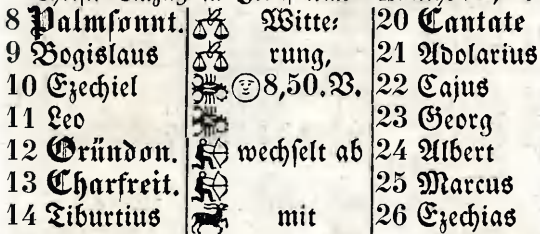 8 Palmsonnt. Witte- 20 Cantate
9 Bogislaus rung, 21 Adolarius
10 Ezechiel 8,50.V. 22 Cajus
11 Leo 23 Georg
12 Gründon. wechselt ab 24 Albert
13 Charfreit. 25 Marcus
14 Tiburtius mit 26 Ezechias